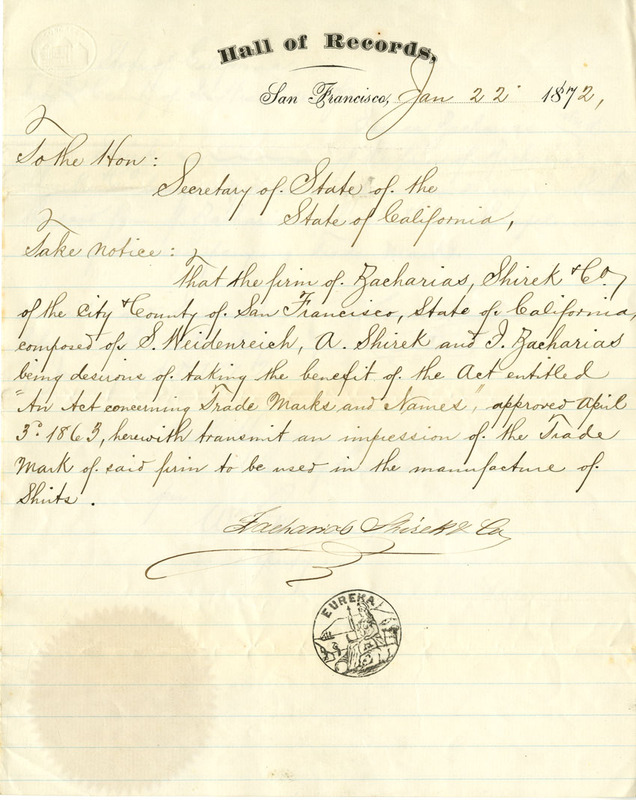 Hall of Records,
San Francisco, Jan 22 1872,
To the Hon:
Secretary of State of the
State of California,
Take notice:
That the firm of Zacharias, Shirek & Co,
of the City & County of San Francisco, State of California,
composed of S. Weidenreich, A. Shirek and I. Zacharias
being desirous of taking the benefit of the Act entitled
"An Act concerning Trade Marks and Names," approved April
3d 1863, herewith transmit an impression of the Trade
Mark of said firm to be used in the manufacture of
Shirts.
Zacharias Shirek & Co
EUREKA